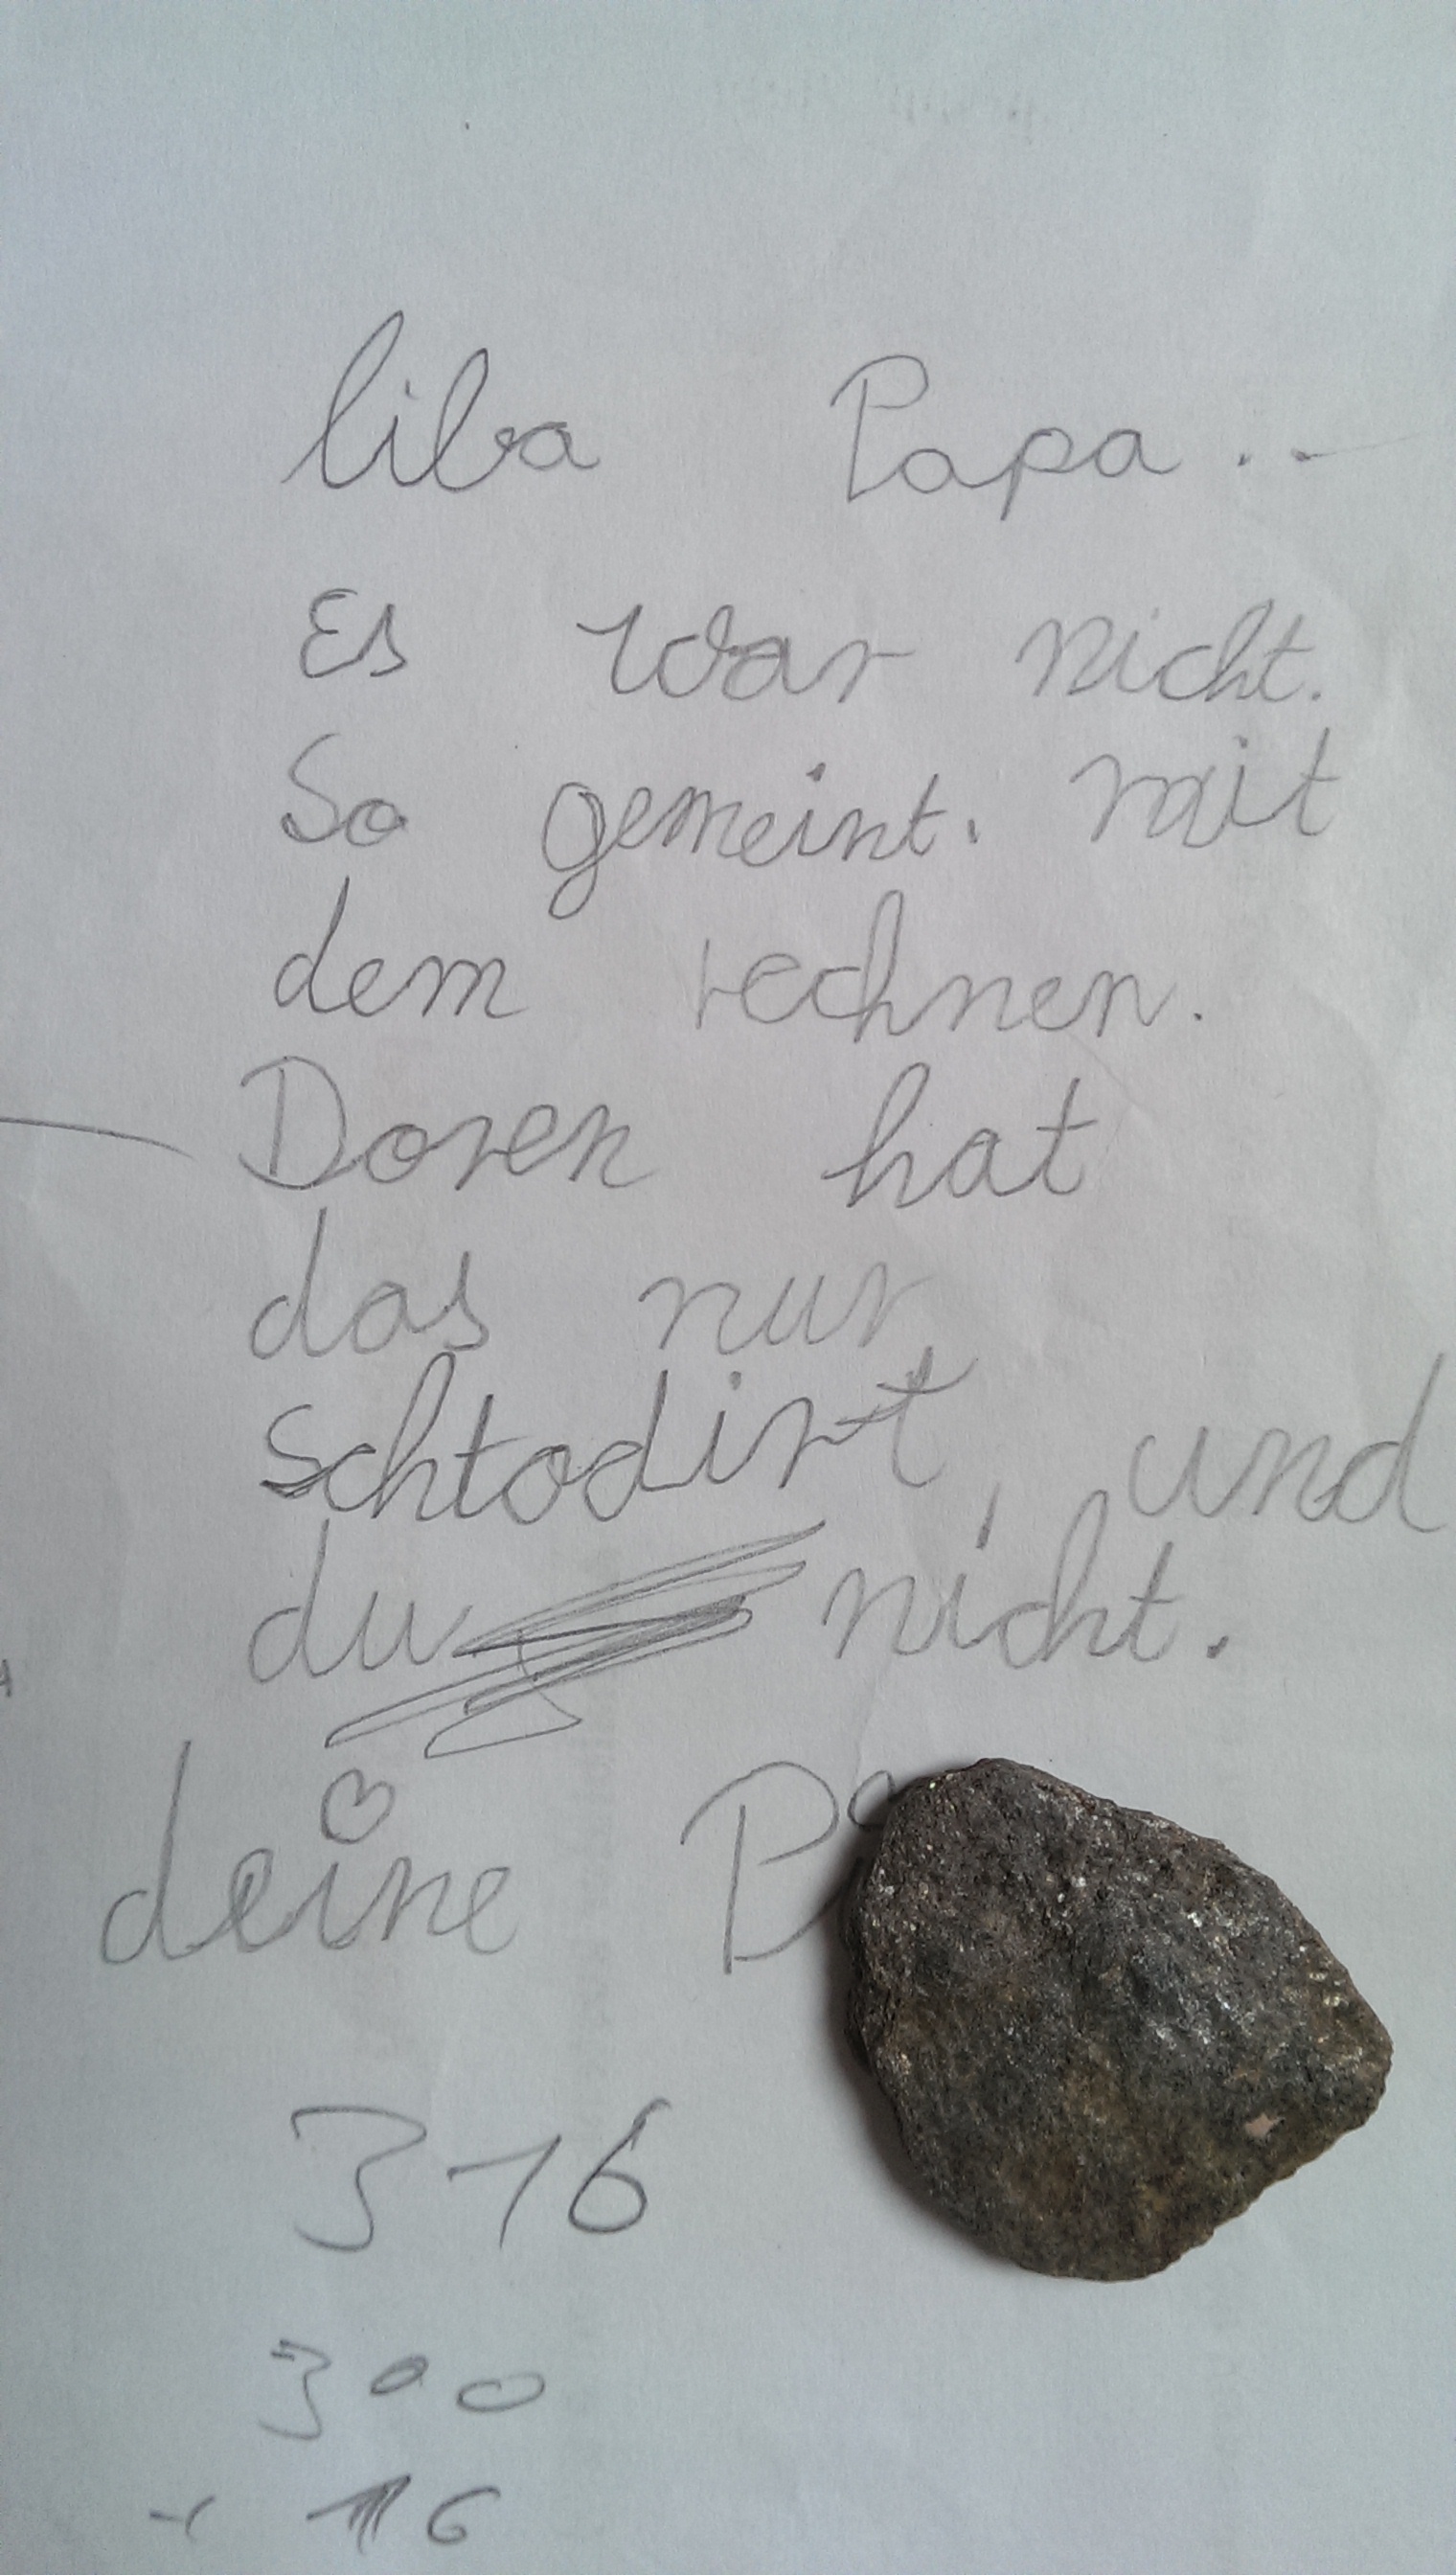 liba Papa..
Es war nicht.
So gemeint. mit
dem rechnen.
Doren hat
das nur
Schtodirt, und
du nicht.
deine
316
300
16